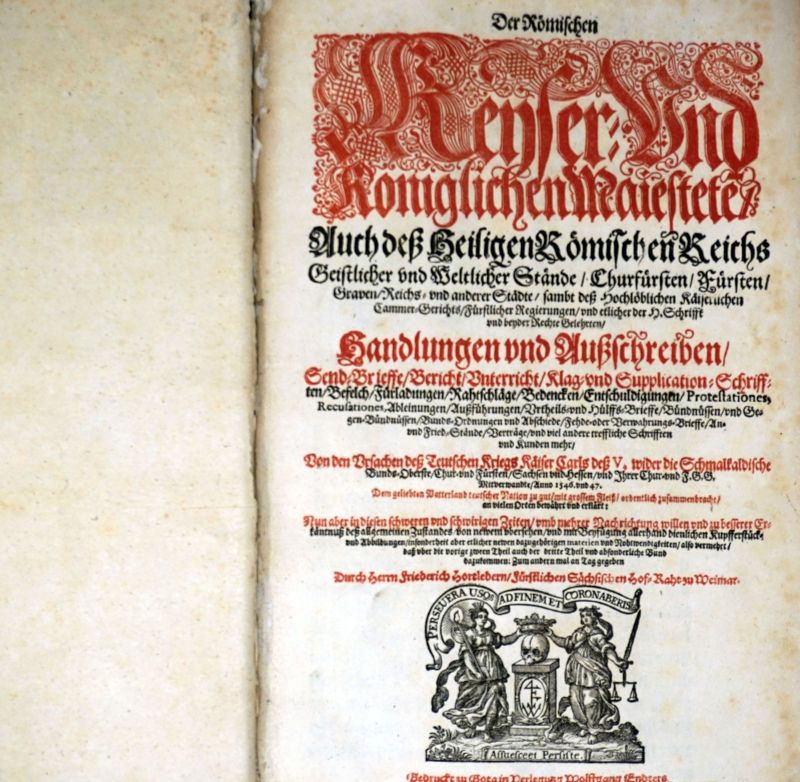 Der Römischen
Keyser: Und
Königlichen Maiestete/
Auch deß Heiligen Römischen Reichs
Geistlicher vnd Weltlicher Stände/ Churfürsten/ Fürsten/
Graven/ Reichs- vnd anderer Städte/ sambt deß Hochlöblichen Käiserlichen
Cammer-Gerichts/ Fürstlicher Regierungen/ vnd etlicher der H. Schrifft
vnd beyder Rechte Gelehrten/
Handlungen vnd Außschreiben/
Send-Brieffe/ Bericht/ Vnterricht/ Klag- vnd Supplication-Schriff-
ten/ Befelch/ Fürladungen/ Rahtschläge/ Bedencken/ Entschuldigungen/ Protestationes,
Recusationes, Ableinungen/ Außführungen/ Vrtheils- vnd Hülffs-Brieffe/ Bündnüssen/ vnd Ge-
gen-Bündnüssen/ Bunds-Ordnungen vnd Abschiede/ Fehde- oder Verwahrungs-Brieffe/ An-
vnd Fried-Stände/ Verträge/ vnd viel andere treffliche Schrifften
vnd Kunden mehr/
Von den Vrsachen deß Teutschen Kriegs Käiser Carls deß V. wider die Schmalkaldische
Bunds-Oberste/ Chur- vnd Fürsten/ Sachsen vnd Hessen/ vnd Ihrer Chur- vnd F. G. G.
Mitverwandte/ Anno 1546. vnd 47.
Dem geliebten Vatterland teutscher Nation zu gut/ mit grossem Fleiß/ ordentlich zusammenbracht/
an vielen Orten bewährt vnd erklärt:
Nun aber in diesen schweren vnd schwirigen Zeiten/ vmb mehrer Nachrichtung willen vnd zu besserer Er-
käntnuß deß allgemeinen Zustandes von newem vbersehen/ vnd mit Beyfügung allerhand dienlichen Kupfferstück-
vnd Abbildungen/ insonderheit aber etlicher newen dazugehörigen materien vnd Nohtwendigkeiten/ also vermehrt/
daß vber die vorige zween Theil auch der dritte Theil vnd absonderliche Bund
dazukommen: Zum andern mal an Tag gegeben
Durch Herrn Friederich Hortledern/ Fürstlichen Sächsischen Hof-Raht zu Weimar.
PERSEVERA USQ AD FINEM ET CORONABERIS
Assuesce et Persiste.
Gedruckt zu Gota in Verlegung Wolffgang Endters